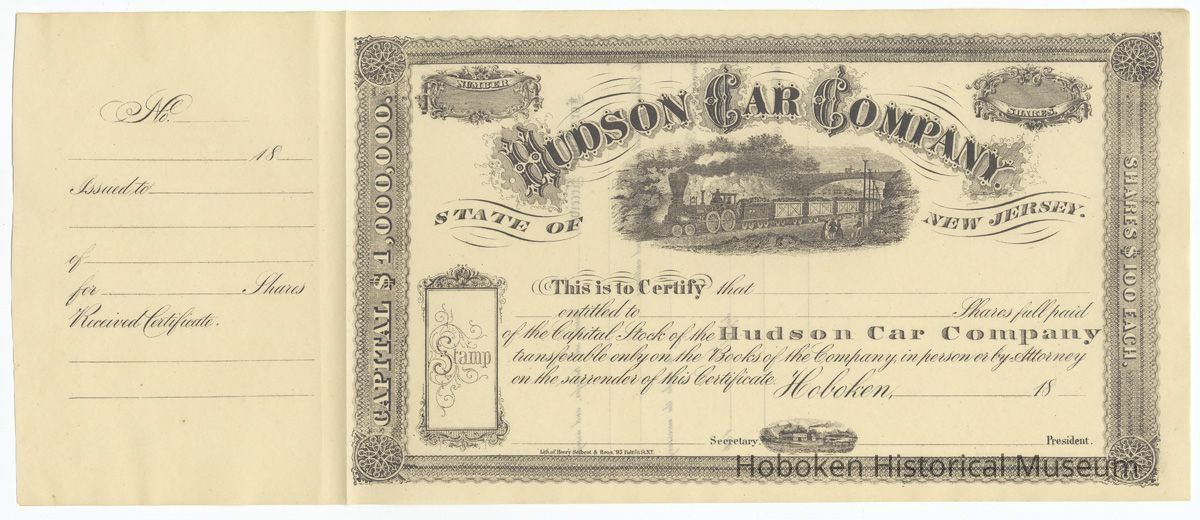 No.
18
Issued to
of
for Shares
Received Certificate.
CAPITAL $1,000,000.
NUMBER
SHARES
HUDSON CAR COMPANY.
STATE OF NEW JERSEY.
SHARES $100 EACH.
Stamp
This is to Certify that
entitled to Shares full paid
of the Capital Stock of the Hudson Car Company
transferable only on the Books of the Company, in person or by Attorney
on the surrender of this Certificate. Hoboken, 18
Secretary. President.
Lith. of Henry Seibert & Bros. 93 Fulton St. N.Y.
Hoboken Historical Museum